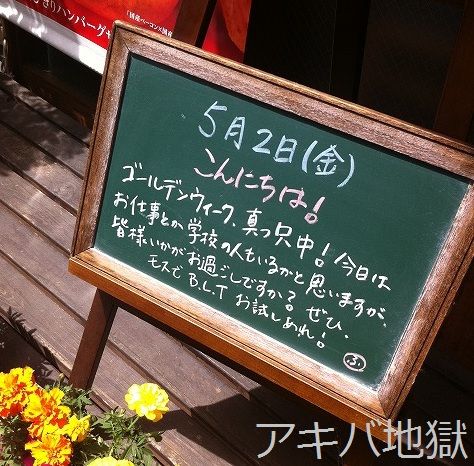 きりハンバーグサ
「国産ベーコンと国産
5月2日(金)
こんにちは!
ゴールデンウィーク、真っ只中!今日は
お仕事とか学校の人もいるかと思いますが、
皆様いかがお過ごしですか?ぜひ、
モスで B.L.T お試しあれ!
ふ
アキバ地獄